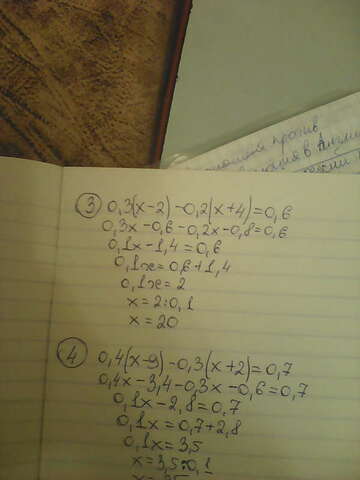 против
в Англи
3 0,3(x-2)-0,2(x+4)=0,6
0,3x-0,6-0,2x-0,8=0,6
0,1x-1,4=0,6
0,1x=0,6+1,4
0,1x=2
x=2:0,1
x=20
4 0,4(x-9)-0,3(x+2)=0,7
0,4x-3,4-0,3x-0,6=0,7
0,1x-2,8=0,7
0,1x=0,7+2,8
0,1x=3,5
x=3,5:0,1
x=35